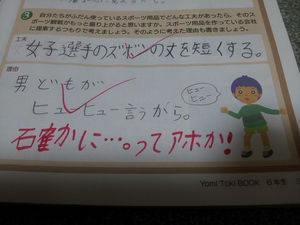 ③ 自分たちがふだん使っているスポーツ用品でどんな工夫があったら、そのス
ポーツ観戦がもっと盛り上がると思いますか。スポーツ用品を作っている会社
に提案するつもりで考えましょう。そのように考えた理由も書きましょう。
工夫
女子選手のズボンの丈を短くする。
理由
男どもが
ヒューヒュー言うから。
ヒュー
ヒュー
確かに…。ってアホか!
Yomi Toki BOOK 6年生